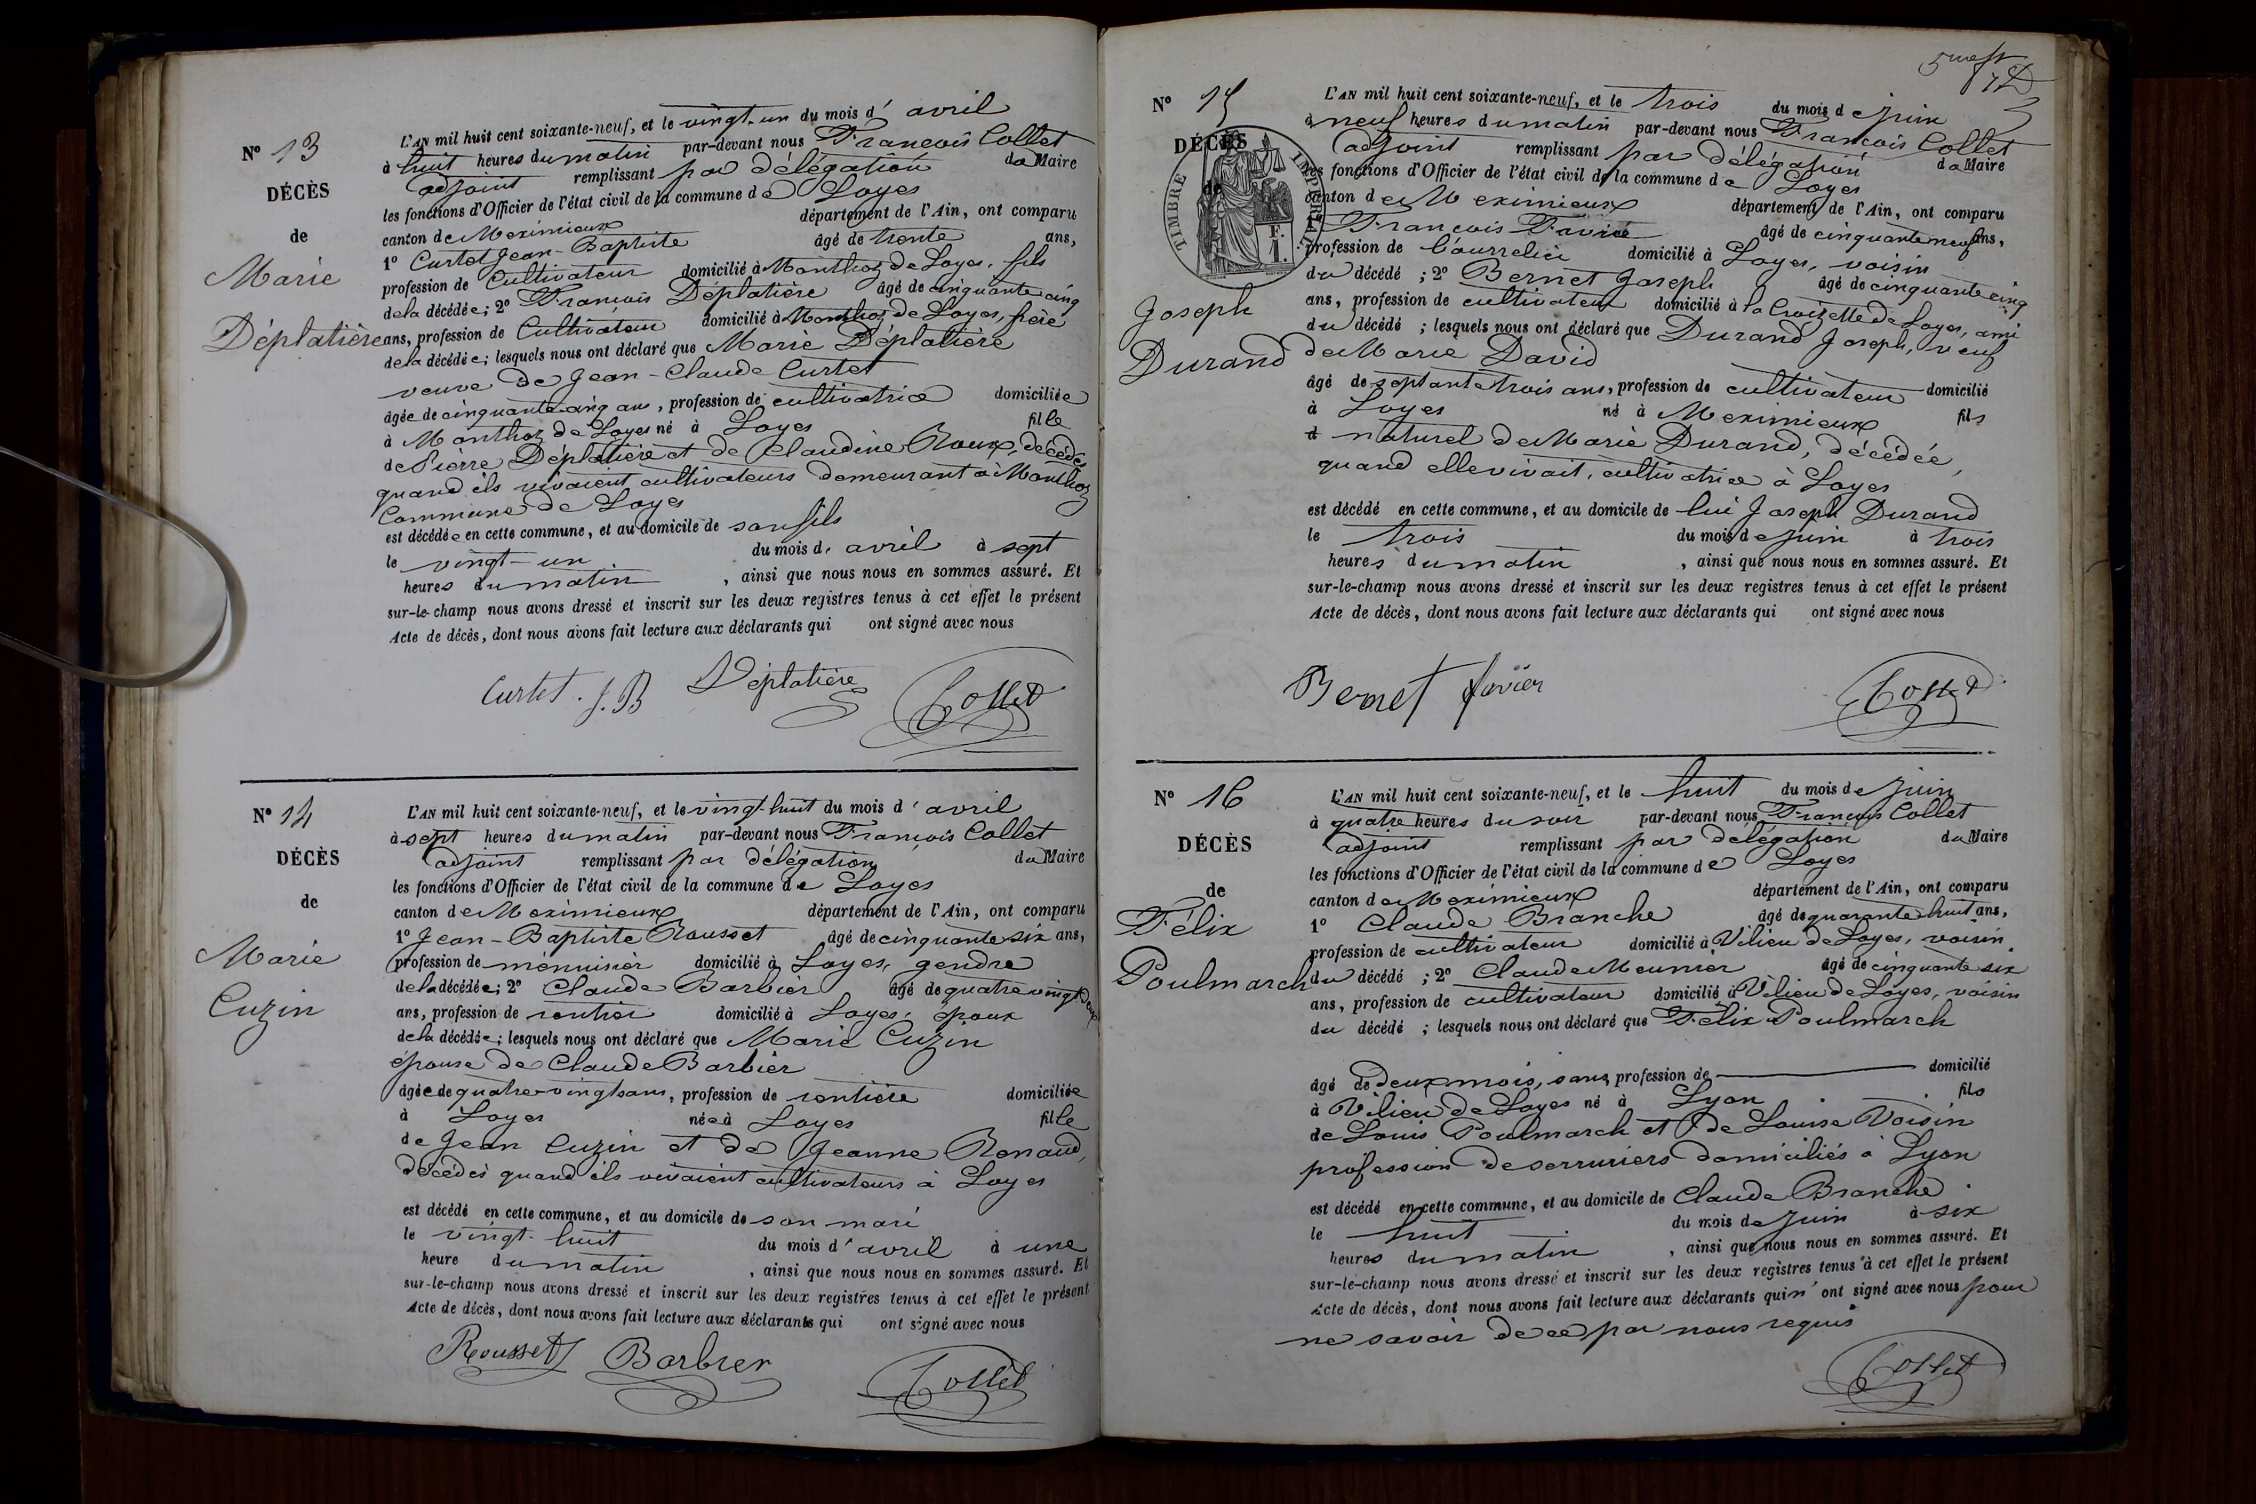 N° 13
DÉCÈS
de
Marie
Déplatière
L'AN mil huit cent soixante-neuf, et le vingt-un du mois d' avril
à huit heures du matin par-devant nous François Collet
adjoint remplissant par délégation du Maire
les fonctions d'Officier de l'état civil de la commune de Loyes
canton de Meximieux département de l'Ain, ont comparu
1° Curtet Jean-Baptiste âgé de trente ans,
profession de Cultivateur domicilié à Monthoz de Loyes, fils
de la décédée; 2° François Déplatière âgé de cinquante cinq
ans, profession de Cultivateur domicilié à Monthoz de Loyes, frère
de la décédée; lesquels nous ont déclaré que Marie Déplatière
veuve de Jean-Claude Curtet
âgée de cinquante-cinq ans, profession de cultivatrice domiciliée
à Monthoz de Loyes né à Loyes fille
de Pierre Déplatière et de Claudine Roux, décédés
quand ils vivaient cultivateurs demeurant à Monthoz
Commune de Loyes
est décédée en cette commune, et au domicile de son fils
le vingt-un du mois d' avril à sept
heures du matin, ainsi que nous nous en sommes assuré. Et
sur-le-champ nous avons dressé et inscrit sur les deux registres tenus à cet effet le présent
Acte de décès, dont nous avons fait lecture aux déclarants qui ont signé avec nous
Curtet. J. B Déplatière Collet
N° 14
DÉCÈS
de
Marie
Cuzin
L'AN mil huit cent soixante-neuf, et le vingt-huit du mois d' avril
à sept heures du matin par-devant nous François Collet
adjoint remplissant par délégation du Maire
les fonctions d'Officier de l'état civil de la commune de Loyes
canton de Meximieux département de l'Ain, ont comparu
1° Jean-Baptiste Rousset âgé de cinquante six ans,
profession de ménuisier domicilié à Loyes, gendre
de la décédée; 2° Claude Barbier âgé de quatre vingt deux
ans, profession de rentier domicilié à Loyes, époux
de la décédée; lesquels nous ont déclaré que Marie Cuzin
épouse de Claude Barbier
âgée de quatre-vingts ans, profession de rentière domiciliée
à Loyes née à Loyes fille
de Jean Cuzin et de Jeanne Renaud,
décédés quand ils vivaient cultivateurs à Loyes
est décédé en cette commune, et au domicile de son mari
le vingt-huit du mois d' avril à une
heure du matin, ainsi que nous nous en sommes assuré. Et
sur-le-champ nous avons dressé et inscrit sur les deux registres tenus à cet effet le présent
Acte de décès, dont nous avons fait lecture aux déclarants qui ont signé avec nous
Rousset Barbier Collet
N° 15
DÉCÈS
de
TIMBRE IMPÉRIAL
F.
1.
Joseph
Durand
L'AN mil huit cent soixante-neuf, et le trois du mois de juin
à neuf heures du matin par-devant nous François Collet
adjoint remplissant par délégation du Maire
les fonctions d'Officier de l'état civil de la commune de Loyes
canton de Meximieux département de l'Ain, ont comparu
1° François Favier âgé de cinquante neuf ans,
profession de bourrelier domicilié à Loyes, voisin
du décédé; 2° Bernet Joseph âgé de cinquante cinq
ans, profession de cultivateur domicilié à la Croizette de Loyes, ami
du décédé; lesquels nous ont déclaré que Durand Joseph, veuf
de Marie David
âgé de septante trois ans, profession de cultivateur domicilié
à Loyes né à Meximieux fils
d naturel de Marie Durand, décédée,
quand elle vivait, cultivatrice à Loyes
est décédé en cette commune, et au domicile de lui Joseph Durand
le trois du mois de juin à trois
heures du matin, ainsi que nous nous en sommes assuré. Et
sur-le-champ nous avons dressé et inscrit sur les deux registres tenus à cet effet le présent
Acte de décès, dont nous avons fait lecture aux déclarants qui ont signé avec nous
Bernet favier Collet
N° 16
DÉCÈS
de
Félix
Poulmarch
L'AN mil huit cent soixante-neuf, et le huit du mois de juin
à quatre heures du soir par-devant nous François Collet
adjoint remplissant par délégation du Maire
les fonctions d'Officier de l'état civil de la commune de Loyes
canton de Meximieux département de l'Ain, ont comparu
1° Claude Branche âgé de quarante huit ans,
profession de cultivateur domicilié à Vilieu de Loyes, voisin
du décédé; 2° Claude Meunier âgé de cinquante six
ans, profession de cultivateur domicilié à Vilieu de Loyes, voisin
du décédé; lesquels nous ont déclaré que Félix Poulmarch
âgé de deux mois, sans profession de domicilié
à Vilieu de Loyes né à Lyon fils
de Louis Poulmarch et de Louise Voisin
profession de serruriers domiciliés à Lyon
est décédé en cette commune, et au domicile de Claude Branche
le huit du mois de juin à six
heures du matin, ainsi que nous nous en sommes assuré. Et
sur-le-champ nous avons dressé et inscrit sur les deux registres tenus à cet effet le présent
Acte de décès, dont nous avons fait lecture aux déclarants qui n' ont signé avec nous pour
ne savoir de ce par nous requis
Collet